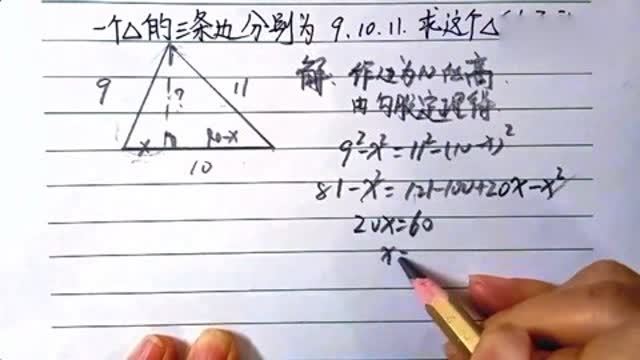 一个△的三条边分别为 9.10.11.求这个△
9
?
11
x
10-x
10
解:作
高
由勾股定理得
9²-x²=11²-(10-x)²
81-x²=121-100+20x-x²
20x=60
x=